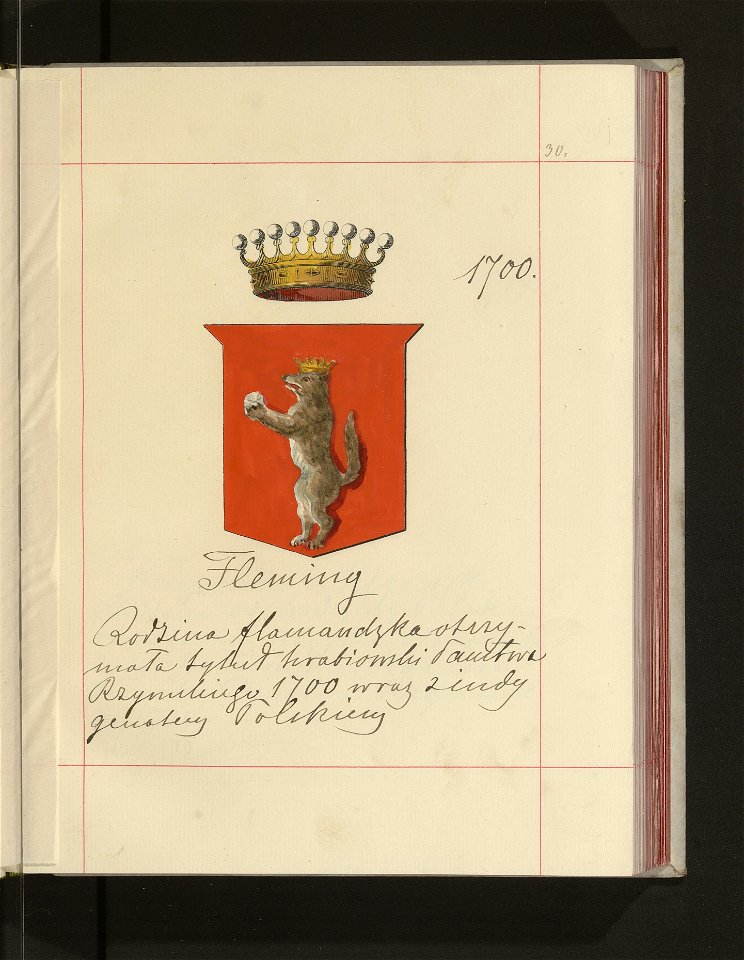 30.
1700.
Fleming
Rodzina flamandzka otrzy-
mała tytuł hrabiowski Państwa
Rzymskiego 1700 wraz z indy
genatem Polskiem